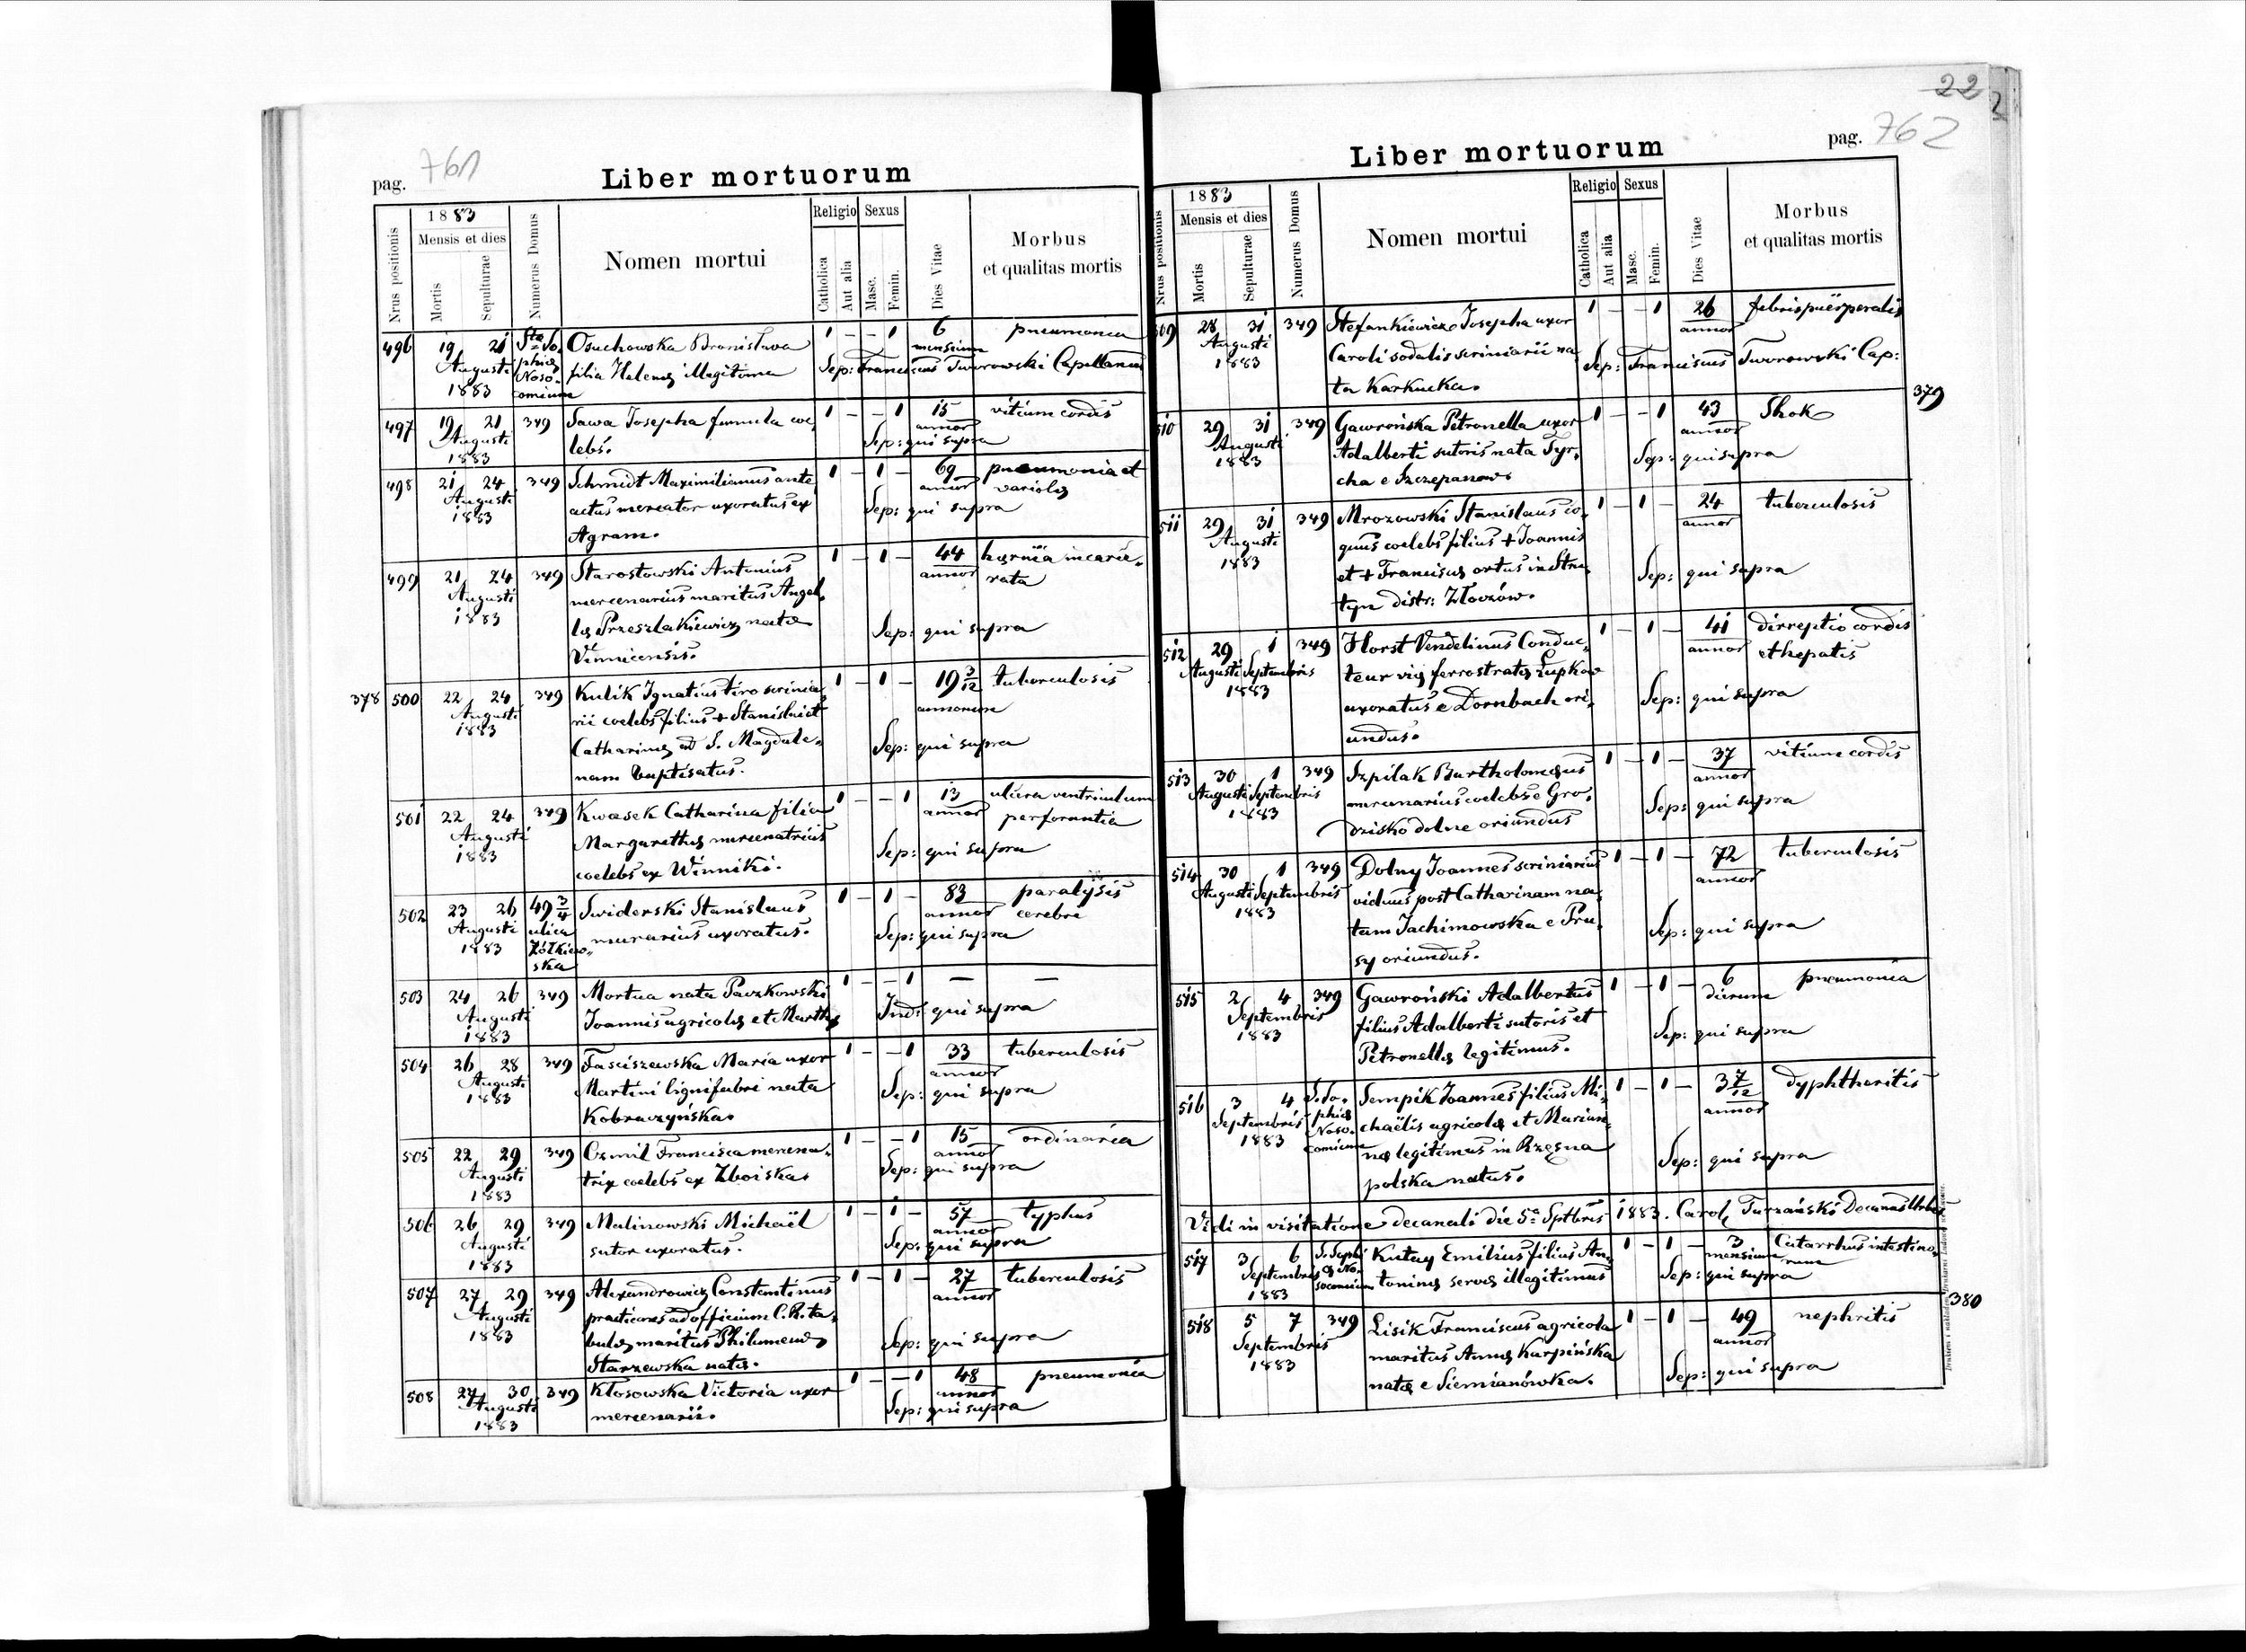 761
pag.
Liber mortuorum
Nrus positionis
1883
Mensis et dies
Mortis
Sepulturae
Numerus Domus
Nomen mortui
Religio
Sexus
Catholica
Aut alia
Masc.
Femin.
Dies Vitae
Morbus
et qualitas mortis
496 19 21 Stæ So, Osuchowska Bronislava 1 – – 1 6 pneumonia
Augusti phiæ filia Helenæ illegitima mensium
1883 Nosocomium Sep: Franciscus Tworowski Capellanus
497 19 21 349 Sawa Josepha famula coe, 1 – – 1 15 vitium cordis
Augusti lebs. annor Sep: qui supra
1883
498 21 24 349 Schmidt Maximilianus ante, 1 – 1 – 69 pneumonia et
Augusti actus mercator uxoratus ex annor variolæ
1883 Agram. Sep: qui supra
499 21 24 349 Starostowski Antonius 1 – 1 – 44 hernia incarce,
Augusti mercenarius maritus Angel, annor rata
1883 læ Przeszlakiewicz natæ Sep: qui supra
Vinnicensis.
378 500 22 24 349 Kulik Ignatius tiro scrinia, 1 – 1 – 19 3/12 tuberculosis
Augusti rii coelebs filius + Stanislai et annorum
1883 Catharinæ ad S. Magdale, Sep: qui supra
nam baptisatus.
501 22 24 349 Kwasek Catharina filia 1 – – 1 13 ulcera ventriculum
Augusti Margarethæ mercenatricis annor perforantia
1883 coelebs ex Winniki. Sep: qui supra
502 23 26 49 3/4 Swiderski Stanislaus 1 – 1 – 83 paralysis
Augusti ulica murarius uxoratus. annor cerebri
1883 Żółkiew, Sep: qui supra
ska
503 24 26 349 Mortua nata Paczkowski 1 – – 1 – –
Augusti Joannis agricolæ et Marthæ Ind: qui supra
1883
504 26 28 349 Fasciszewska Maria uxor 1 – – 1 33 tuberculosis
Augusti Martini lignifabri nata annor
1883 Kobraczyńska. Sep: qui supra
505 22 29 349 Czmil Francisca mercena, 1 – – 1 15 ordinaria
Augusti trix coelebs ex Zboiska. annor
1883 Sep: qui supra
506 26 29 349 Malinowski Michaël 1 – 1 – 57 typhus
Augusti sutor uxoratus. annor
1883 Sep: qui supra
507 27 29 349 Alexandrowicz Constantinus 1 – 1 – 27 tuberculosis
Augusti practicans ad officium C. R. ta, annor
1883 bulæ maritus Philumenæ Sep: qui supra
Starzewska natæ.
508 27 30 349 Kłosowska Victoria uxor 1 – – 1 48 pneumonia
Augusti mercenarii. annor
1883 Sep: qui supra
22
762
pag.
Liber mortuorum
Nrus positionis
1883
Mensis et dies
Mortis
Sepulturae
Numerus Domus
Nomen mortui
Religio
Sexus
Catholica
Aut alia
Masc.
Femin.
Dies Vitae
Morbus
et qualitas mortis
509 28 31 349 Stefankiewicz Josepha uxor 1 – – 1 26 febris puerperalis
Augusti Caroli sodalis scriniarii na, annor
1883 ta Karkucka. Sep: Franciscus Tworowski Cap:
379
510 29 31 349 Gawrońska Petronella uxor 1 – – 1 43 Shok
Augusti Adalberti sutoris nata Tyr, annor
1883 cha e Szczepanow. Sep: qui supra
511 29 31 349 Mrozowski Stanislaus co, 1 – 1 – 24 tuberculosis
Augusti quus coelebs filius + Joannis annor
1883 et + Franciscæ ortus in Stru, Sep: qui supra
tyn distr: Złoczów.
512 29 1 349 Horst Vendelinus Conduc, 1 – 1 – 41 dirreptio cordis
Augusti Septembris teur viæ ferrostratæ Łupkow annor et hepatis
1883 uxoratus e Dornbach ori, Sep: qui supra
undus.
513 30 1 349 Szpilak Bartholomæus 1 – 1 – 37 vitium cordis
Augusti Septembris mercenarius coelebs e Gro, annor
1883 dzisko dolne oriundus Sep: qui supra
514 30 1 349 Dolny Joannes scriniarius 1 – 1 – 72 tuberculosis
Augusti Septembris viduus post Catharinam na, annor
1883 tam Jachimowska e Pru, Sep: qui supra
sy oriundus.
515 2 4 349 Gawroński Adalbertus 1 – 1 – 6 pneumonia
Septembris filius Adalberti sutoris et dierum
1883 Petronellæ legitimus. Sep: qui supra
516 3 4 S. So, Sempik Joannes filius Mi, 1 – 1 – 3 7/12 dyphtheritis
Septembris phiæ chaëlis agricolæ et Marian, annor
1883 Nosocomium næ legitimus in Rzęsna Sep: qui supra
polska natus.
Vidi in visitatione decanali die 5ª Sptbris 1883. Carol, Turzański Decanus Urbis
517 3 6 S. Sophi Kutny Emilius filius An, 1 – 1 – 3 Catarrhus intestino,
Septembris æ Nosocomium toninæ servæ illegitimus mensium rum
1883 Sep: qui supra
380
518 5 7 349 Lisik Franciscus agricola 1 – 1 – 49 nephritis
Septembris maritus Annæ Karpińska annor
1883 natæ e Siemianówka. Sep: qui supra